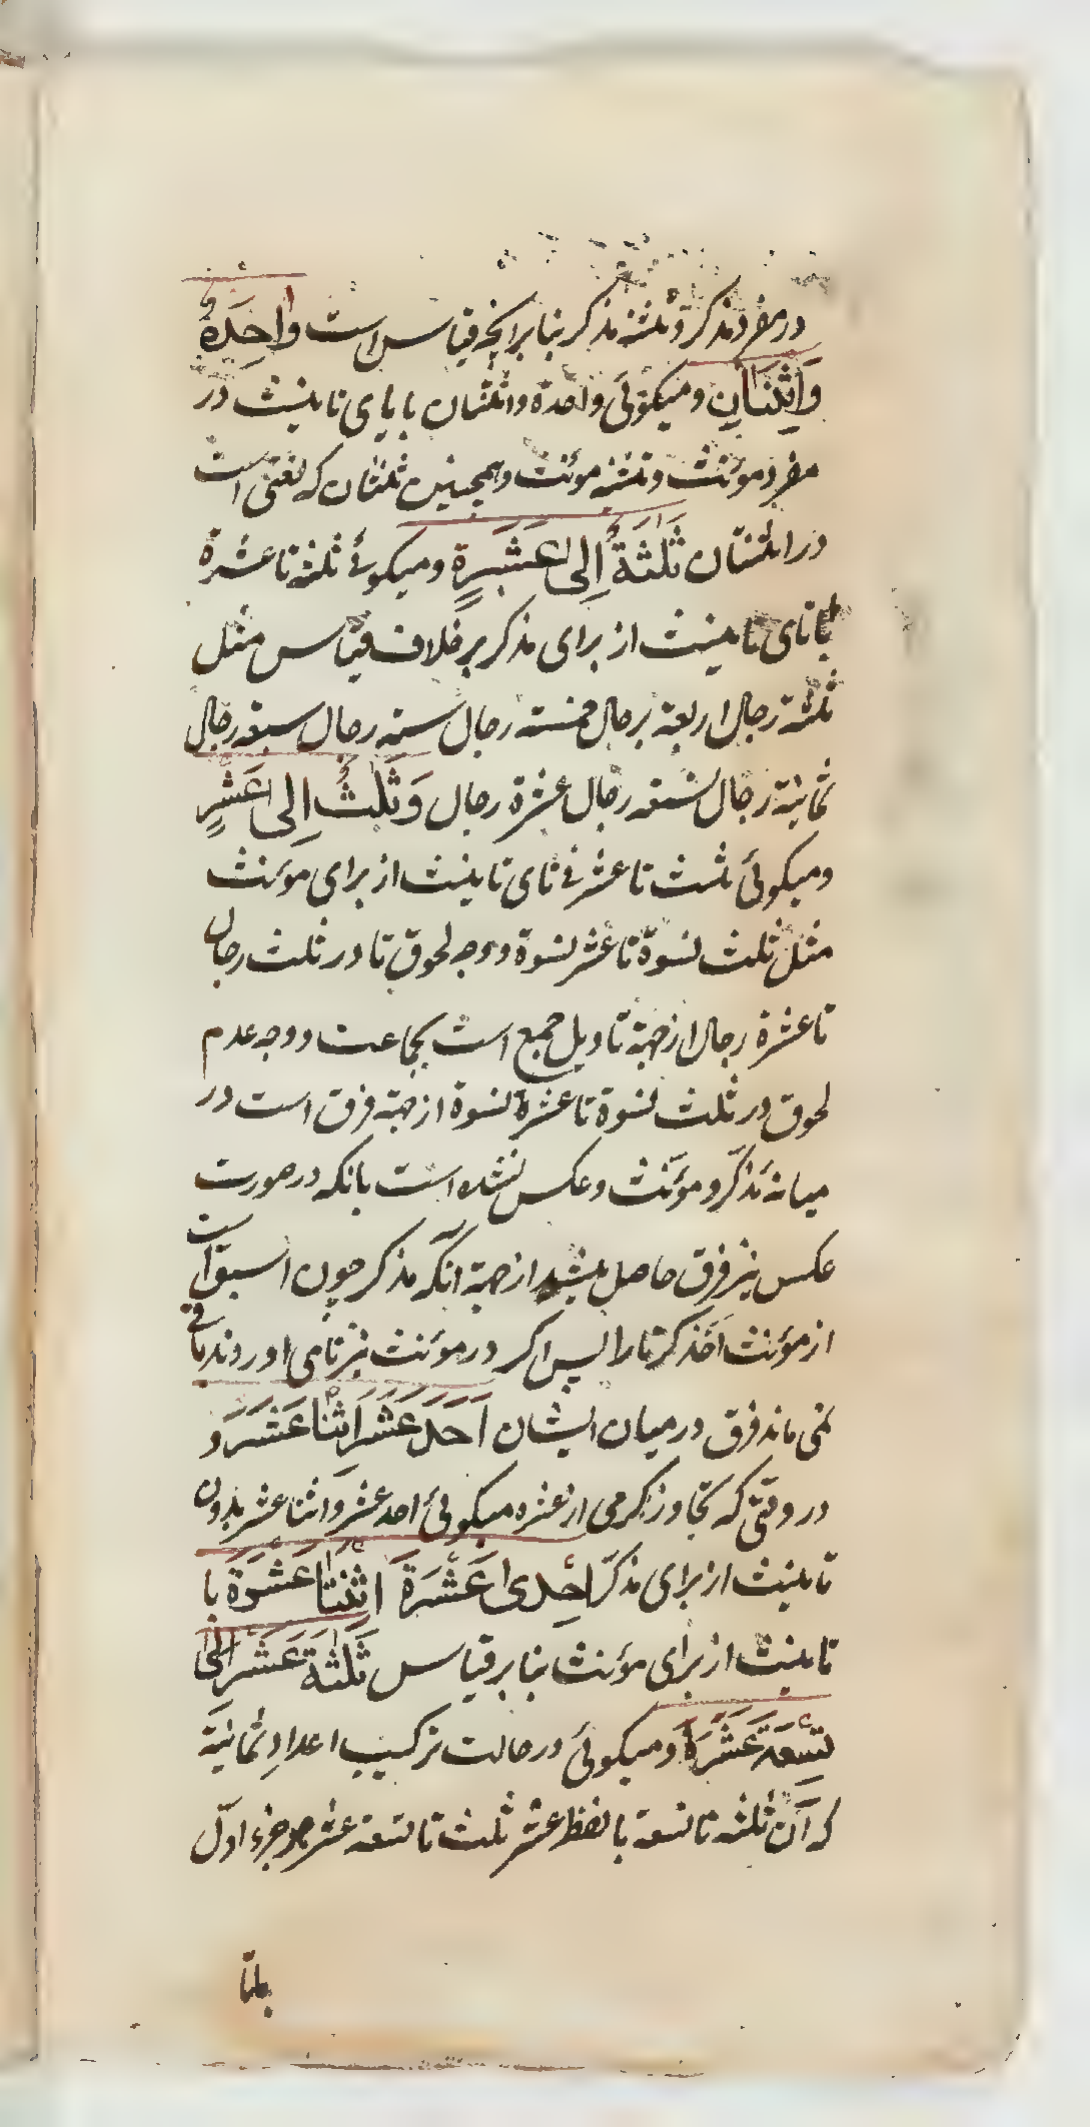 در مفرد مذکر و تثنیه مذکر بنابر آنچه قیاس است وَاحِدَةٌ
وَاِثْنَتَانِ و میکوئی واحدة و اثنتان با تای تانیث در
مفرد مؤنث و تثنیه مؤنث و همچنین ثنتان که لغتی است
در اثنتان ثَلٰثَةٌ اِلٰی عَشَرَةٍ و میکوئی ثلثه تا عشرة
با تای تانیث از برای مذکر بر خلاف قیاس مثل
ثلثة رجال اربعة رجال خمسته رجال ستة رجال سبعة رجال
ثمانیة رجال تسعة رجال عشرة رجال وَثَلٰثُ اِلٰی عَشْرٍ
و میکوئی ثلث تا عشر بی تای تانیث از برای مؤنث
مثل ثلث نسوة تا عشر نسوة و وجه لحوق تا در ثلث رجال
تا عشرة رجال از جهة تاویل جمع است بجماعت و وجه عدم
لحوق در ثلث نسوة تا عشرة نسوة از جهة فرق است در
میانه مذکر و مؤنث و عکس نشده است بانکه در صورت
عکس نیز فرق حاصل میشد از جهة انکه مذکر چون اسبق است
از مؤنث اَخَذ کرد تا را پس اکر در مؤنث نیز تا می اوردند باقی
نمی ماند فرق در میان ایشان اَحَدَ عَشَرَ اِثْنَا عَشَرَ و
در وقتی که تجاوز کرمی از عشره میکوئی احد عشر و اثنا عشر بدون
تانیث از برای مذکر اِحْدٰی عَشْرَةَ اِثْنَتَا عَشْرَةَ با
تانیث از برای مؤنث بنابر قیاس ثَلٰثَةَ عَشَرَ اِلٰی
تِسْعَةَ عَشَرَةَ و میکوئی در حالت ترکیب اعدادِ ثمانیَة
که آن ثلثه تا تسعة با لفظ عشر ثلث تا تسعة عشر جزء اوّل